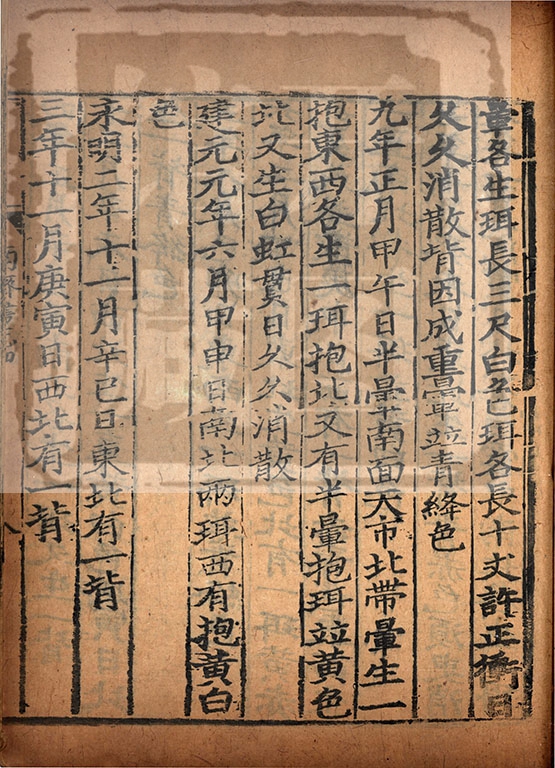 暈各生珥長三尺白色珥各長十丈許正衝日
久久消散背因成重暈竝青絳色
九年正月甲午日半暈南面不帀北帶暈生一
抱東西各生一珥抱北又有半暈抱珥竝黃色
北又生白虹貫日久久消散
建元元年六月甲申日南北兩珥西有抱黃白
色
永明二年十一月辛巳日東北有一背
三年十一月庚寅日西北有一背